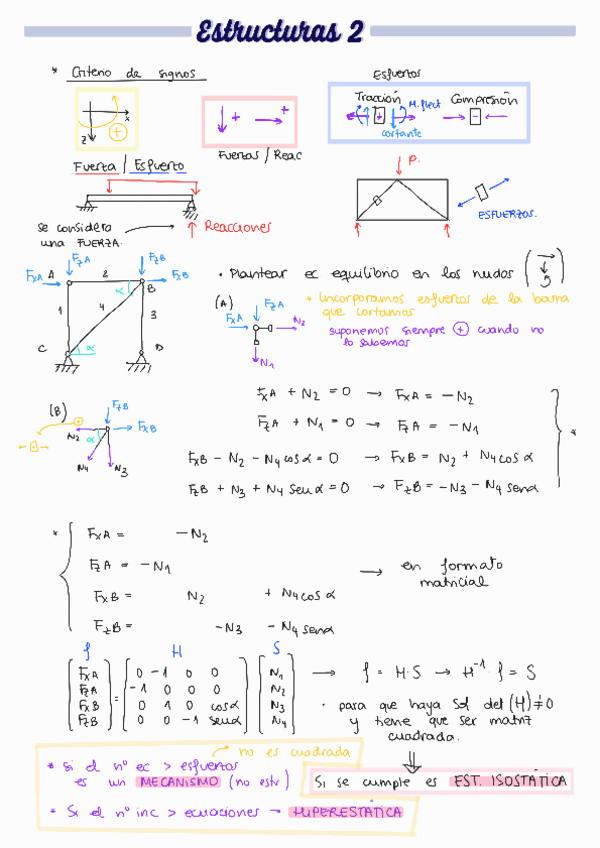 Estructuras 2
* Criterio de signos
x
z
+
+ +
Fuerzas / Reac
Esfuerzos
Tracción M. flect Compresión
+ -
cortante
Fuerza / Esfuerzo
Se considera una FUERZA.
Reacciones
P.
ESFUERZOS.
FzA FzB
FxA A 2 B FxB
1 4 α 3
C α D
• Plantear ec equilibrio en los nudos
(A)
FxA FzA
N2
N1
* Incorporamos esfuerzos de la barra
que cortamos
suponemos siempre + cuando no
lo sabemos
(B)
FzB
FxB
N2 α
N4 N3
FxA + N2 = 0 → FxA = - N2
FzA + N1 = 0 → FzA = - N1
FxB - N2 - N4 cos α = 0 → FxB = N2 + N4 cos α
FzB + N3 + N4 sen α = 0 → FzB = - N3 - N4 sen α
*
* FxA = - N2
FzA = - N1
FxB = N2 + N4 cos α
FzB = - N3 - N4 sen α
→ en formato
matricial
f H S
FxA 0 -1 0 0 N1
FzA = -1 0 0 0 N2
FxB 0 1 0 cos α N3
FzB 0 0 -1 sen α N4
→ f = H·S → H⁻¹·f = S
• para que haya Sol det (H) ≠ 0
y tiene que ser matriz
cuadrada.
→ no es cuadrada
* Si el nº ec > esfuerzos
es un MECANISMO (no estr)
Si se cumple es EST. ISOSTÁTICA
* Si el nº inc > ecuaciones → HIPERESTÁTICA